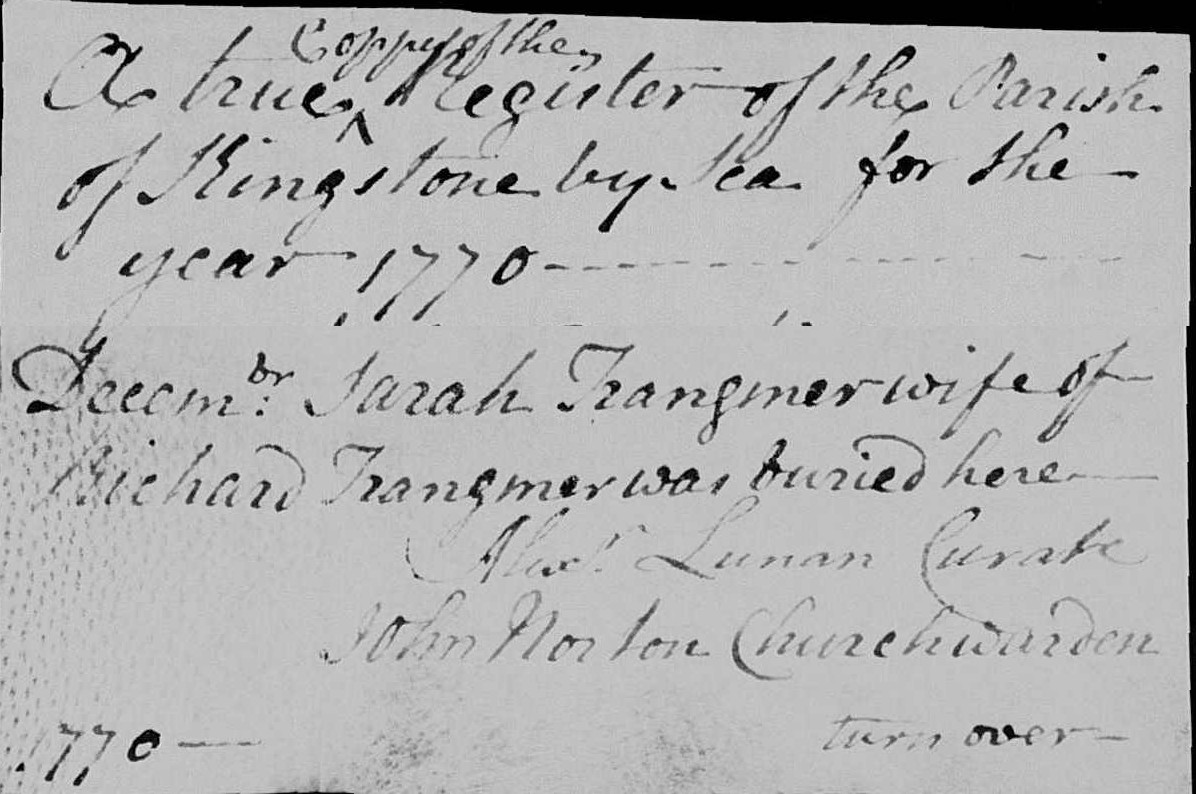 A true ^ Coppy of the Register of the Parish
of Kingstone by Sea for the
year 1770
Decembr: Sarah Trangmer wife of
Richard Trangmer was buried here
Alexr. Lunan Curate
John Norton Churchwarden
1770 —
turn over —